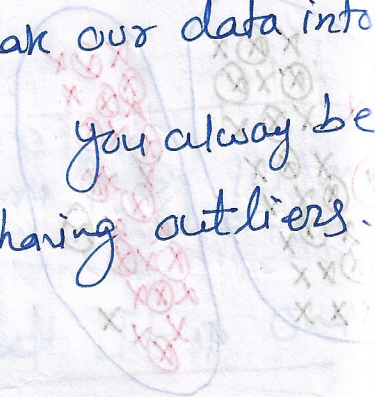 ak our data into
you alway be
having outliers.